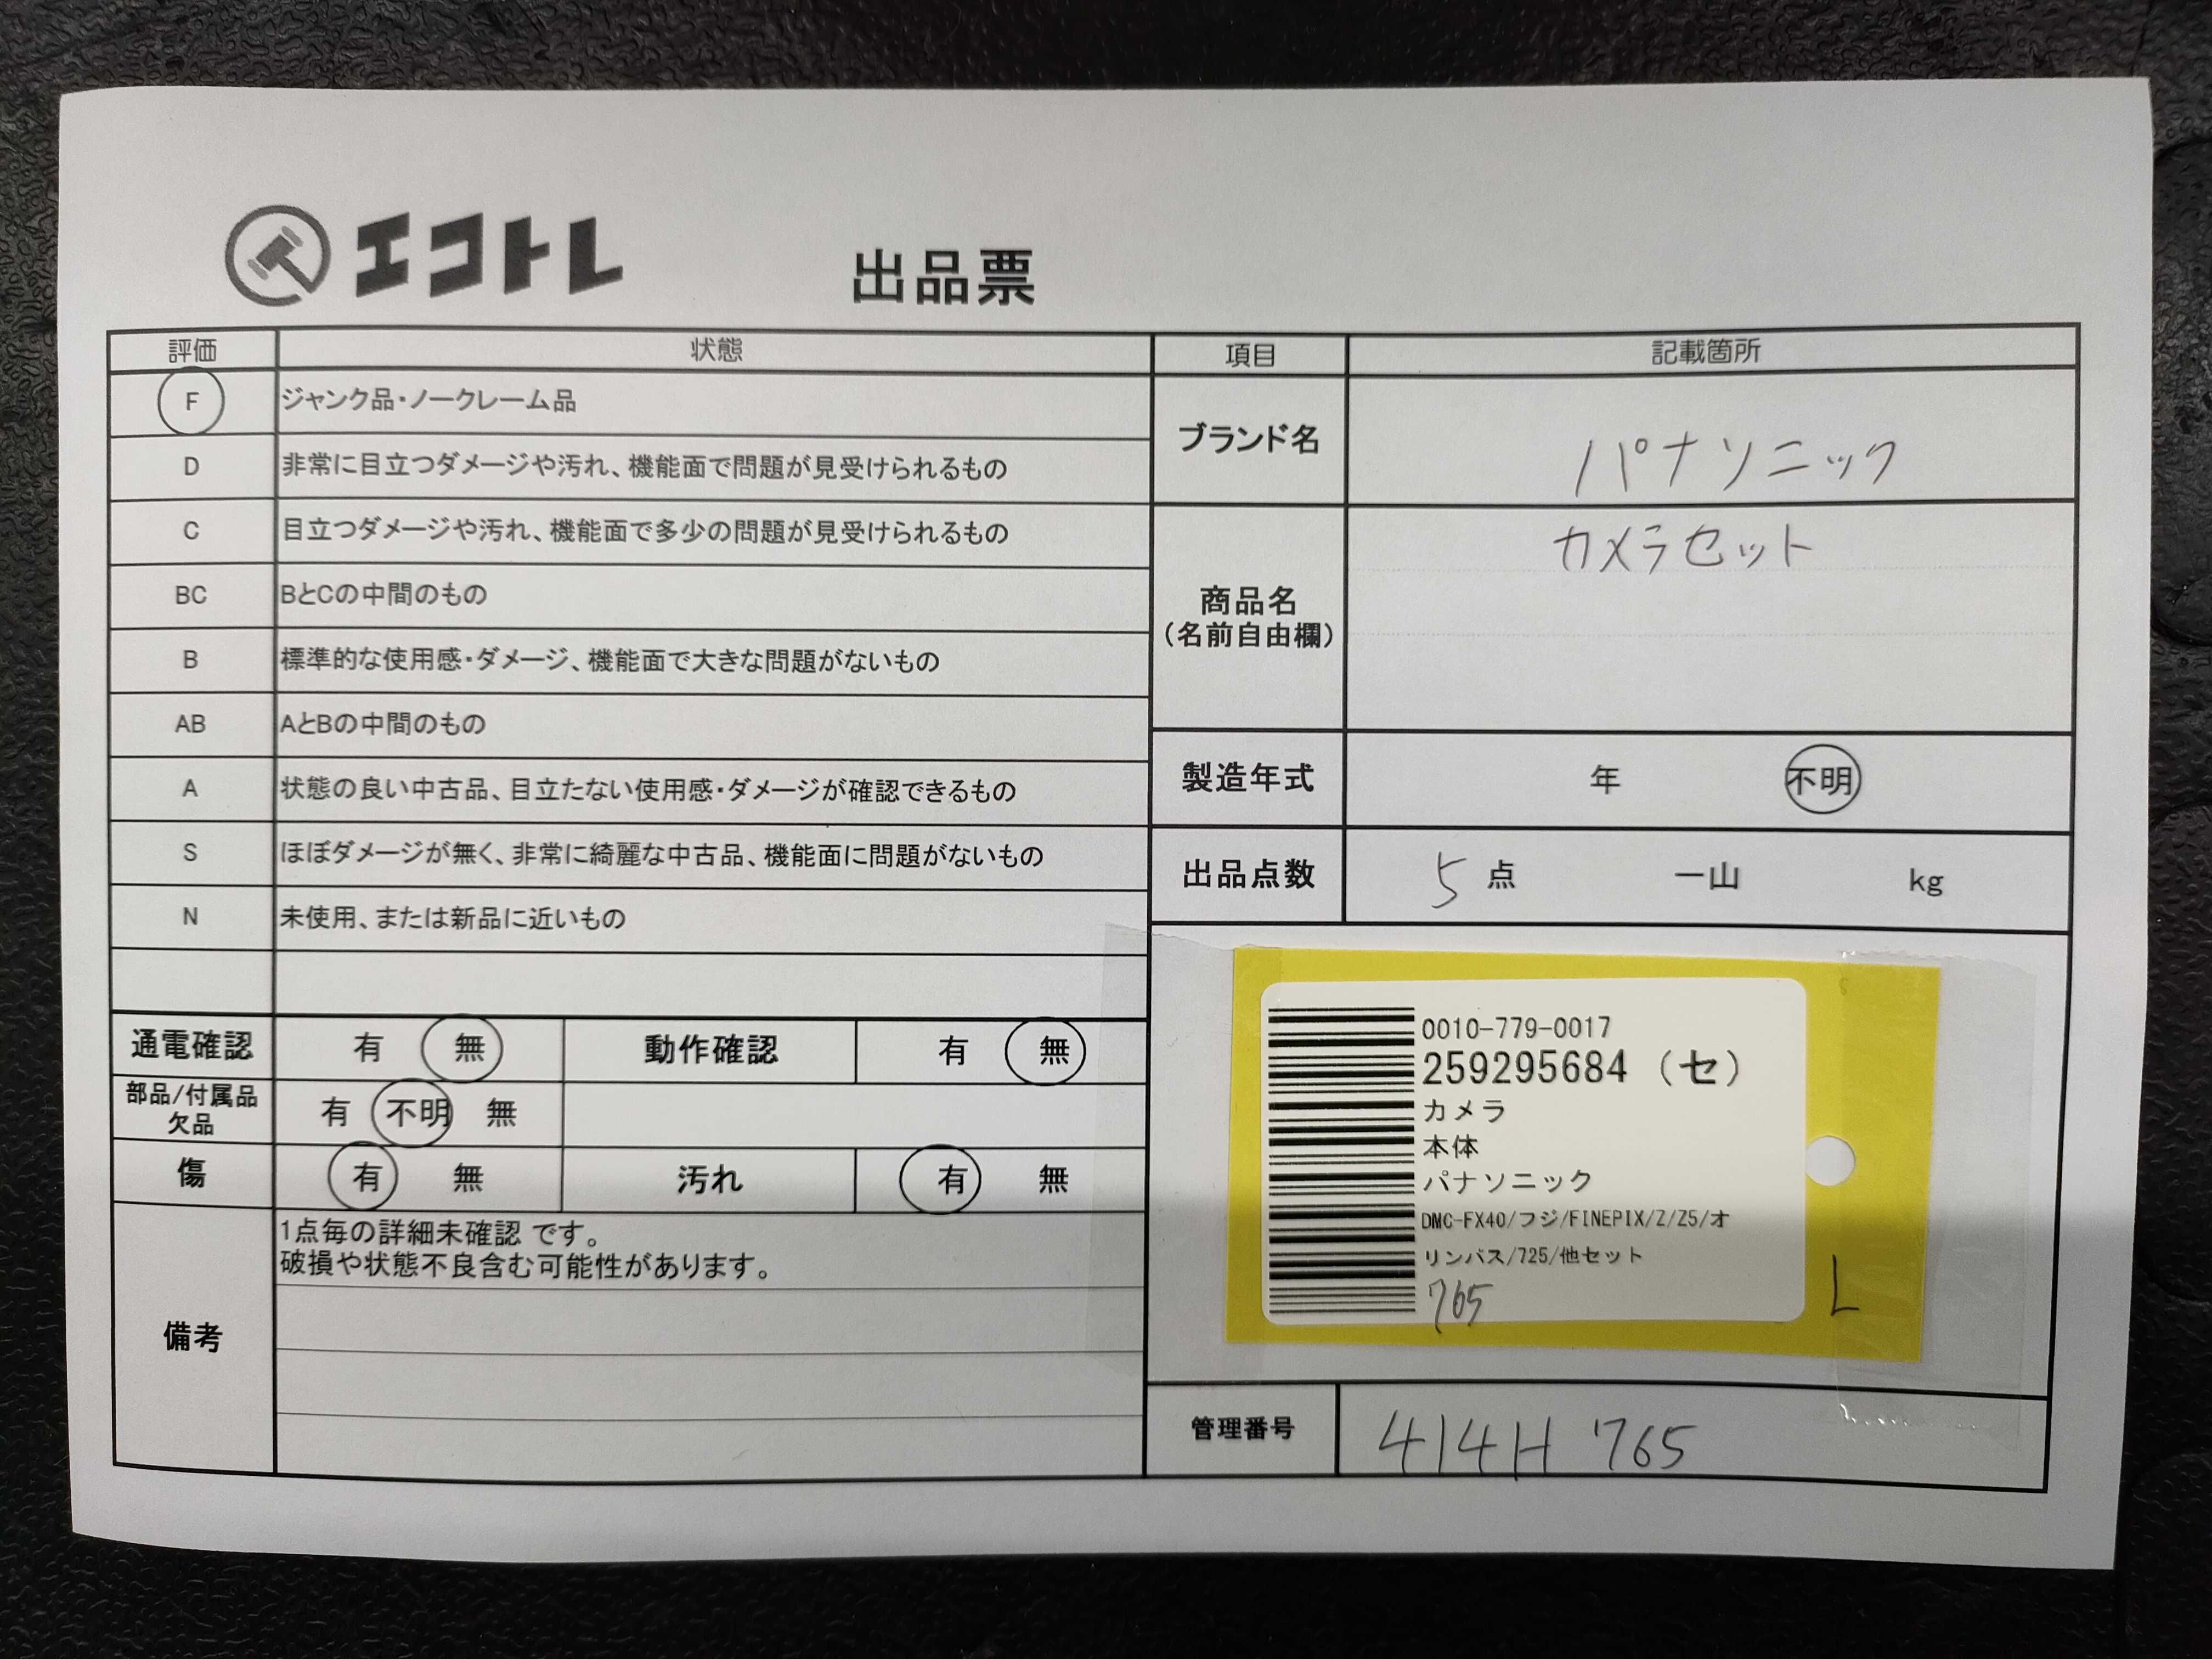 エコトレ
出品票
評価 状態
F ジャンク品・ノークレーム品
D 非常に目立つダメージや汚れ、機能面で問題が見受けられるもの
C 目立つダメージや汚れ、機能面で多少の問題が見受けられるもの
BC BとCの中間のもの
B 標準的な使用感・ダメージ、機能面で大きな問題がないもの
AB AとBの中間のもの
A 状態の良い中古品、目立たない使用感・ダメージが確認できるもの
S ほぼダメージが無く、非常に綺麗な中古品、機能面に問題がないもの
N 未使用、または新品に近いもの
通電確認 有 無 動作確認 有 無
部品/付属品
欠品 有 不明 無
傷 有 無 汚れ 有 無
備考
1点毎の詳細未確認 です。
破損や状態不良含む可能性があります。
項目 記載箇所
ブランド名 パナソニック
商品名
(名前自由欄)
カメラセット
製造年式 年 不明
出品点数 5 点 一山 kg
0010-779-0017
259295684 (セ)
カメラ
本体
パナソニック
DMC-FX40/フジ/FINEPIX/Z/Z5/オ
リンパス/725/他セット
765
L
管理番号 414H 765